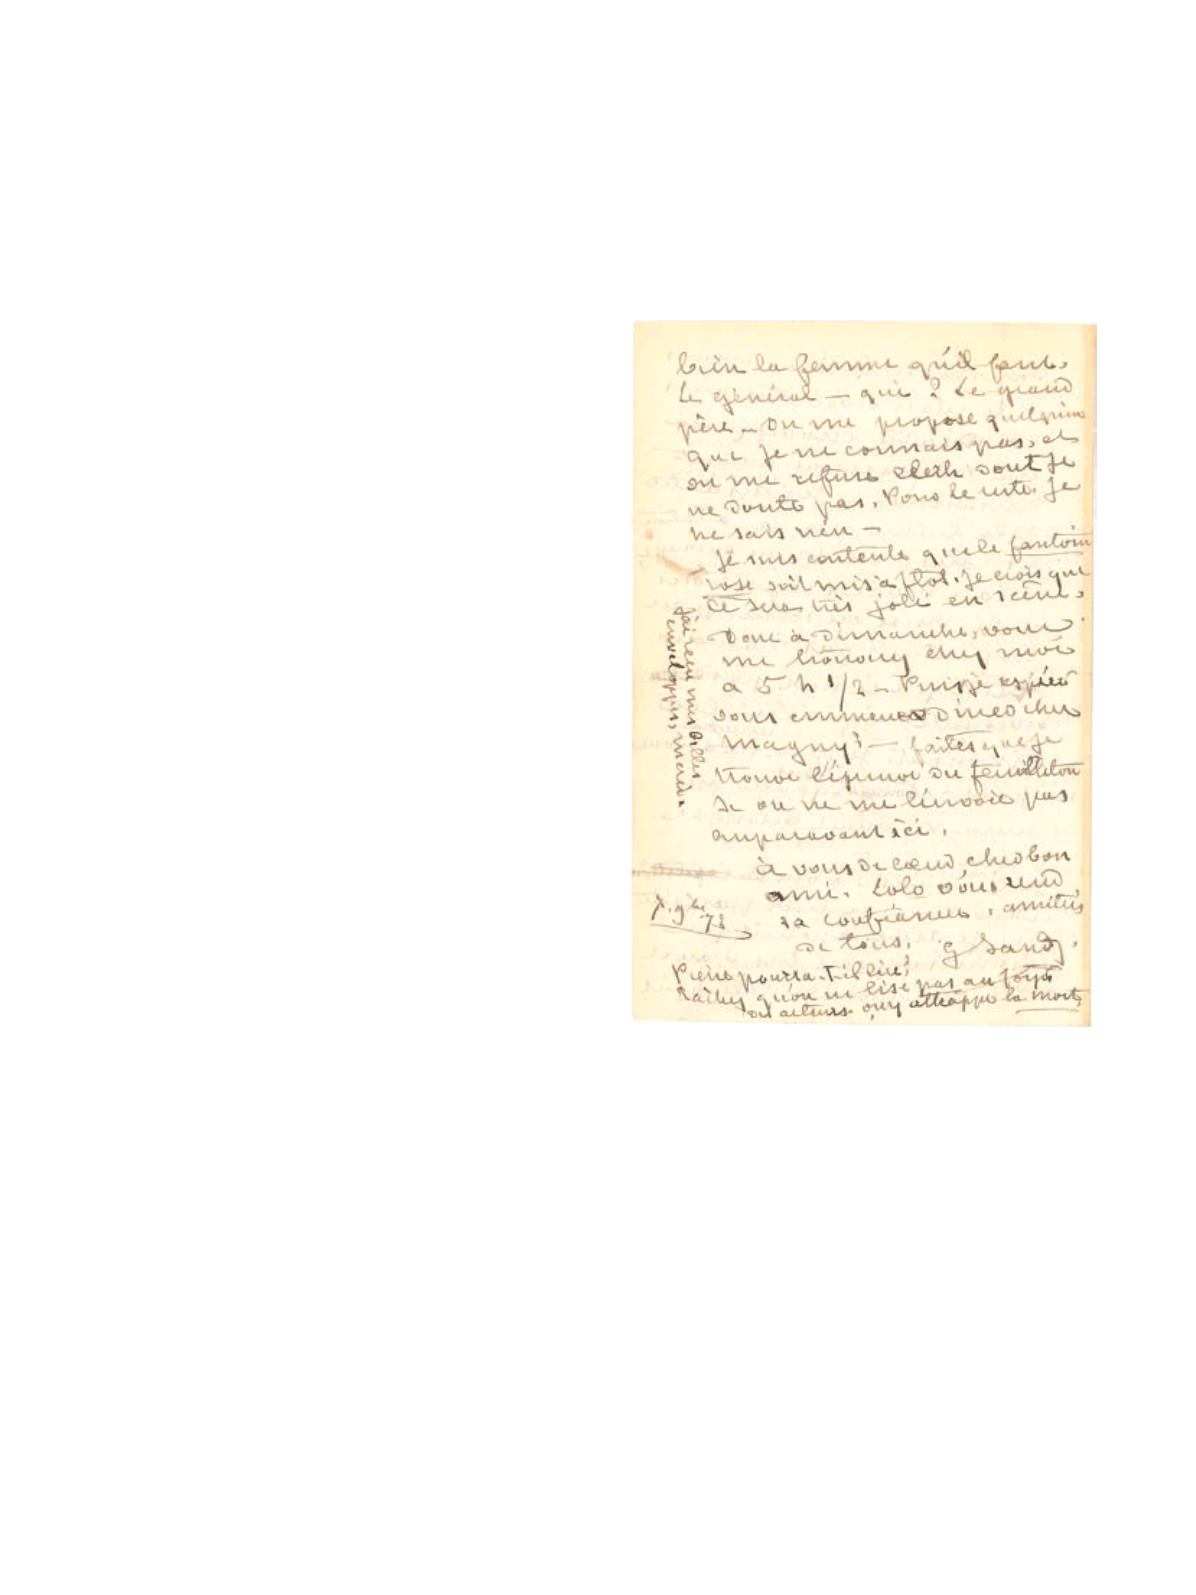 bien la femme qu'il faut.
Le général — qui ? Le grand
père — On me propose quelqu'un
que je ne connais pas, et
on me refuse clerh dont je
ne doute pas. Pour le reste je
ne sais rien —
Je suis contente que le fantôme
rose soit mis à flot. Je crois que
ce sera très joli en scène.
Donc à dimanche, vous
me trouvez chez moi
à 5 h 1/2 — Puis-je espérer
vous emmener dîner chez
Magny ? — faites que je
trouve l'épreuve du feuilleton
si on ne me l'envoie pas
auparavant ici.
à vous de cœur, cher bon
ami. Lolo vous rend
sa confiance, amitiés
de tous. G Sand
7. 9bre 72
Pierre pourra-t-il lire ?
Tâchez qu'on ne lise pas au foyer
des acteurs. on y attrappe la mort.
J'ai reçu mes billes
enveloppes, merci.